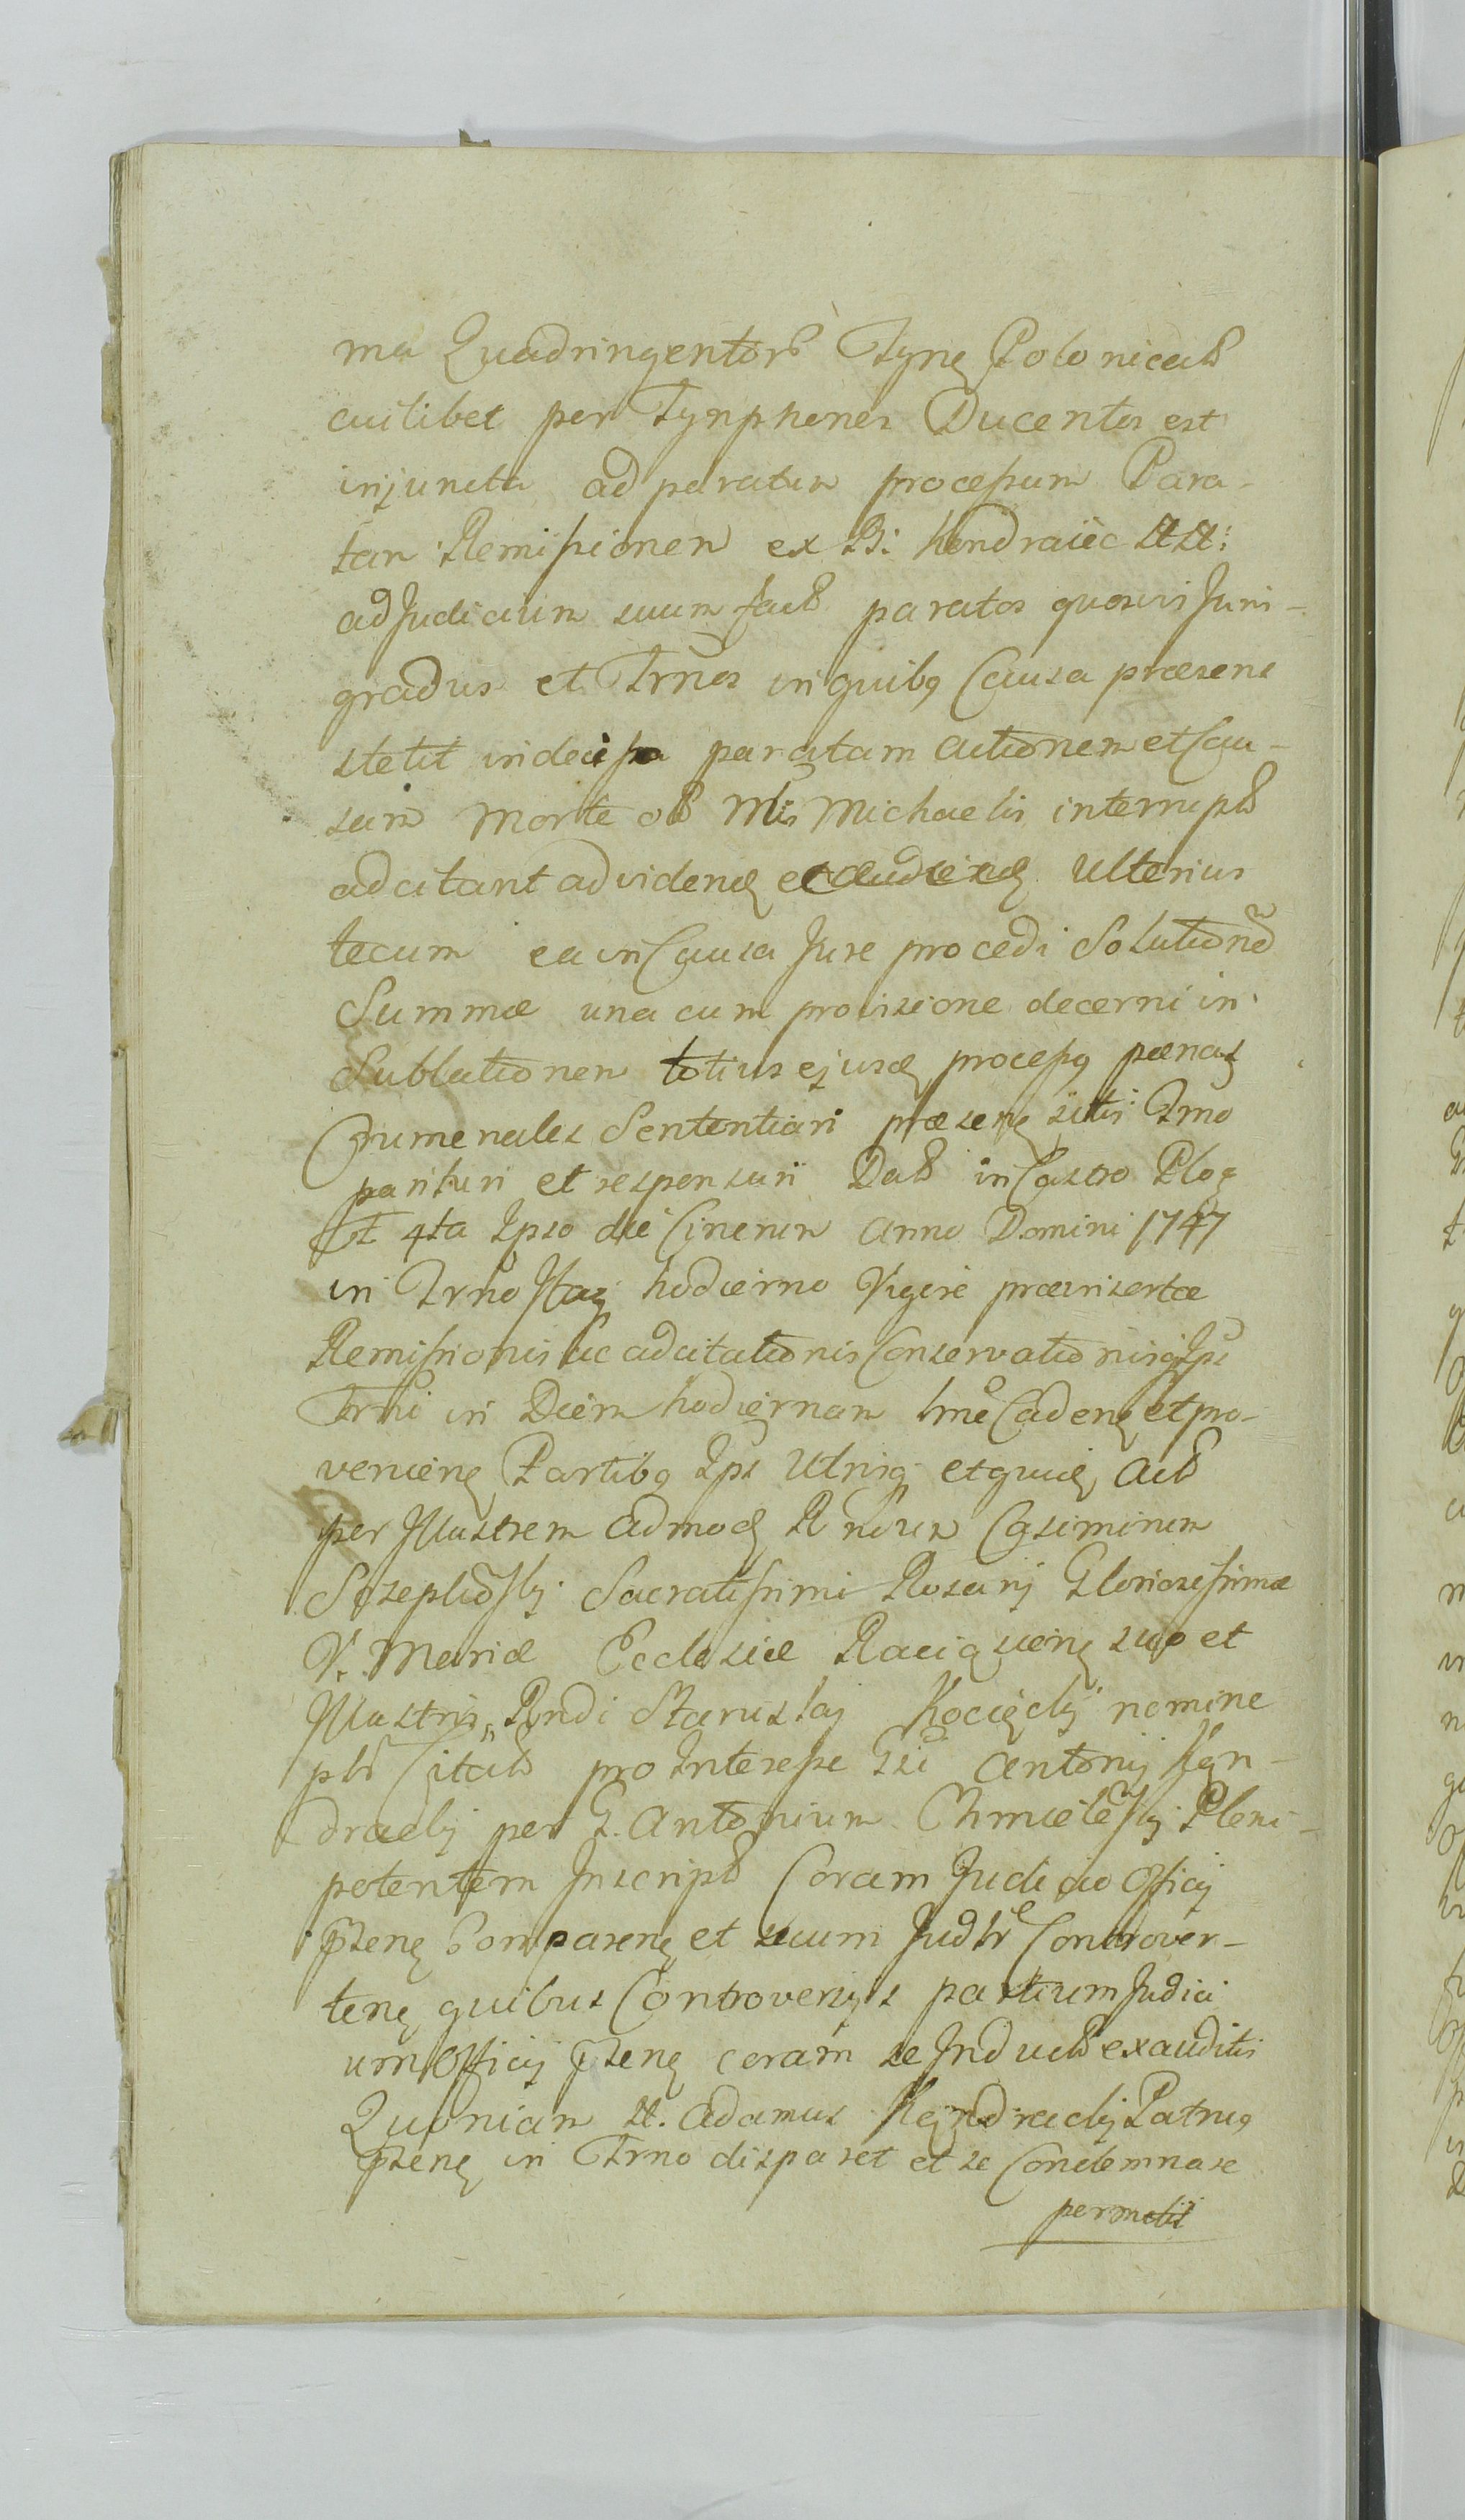 ma Quadringentor Tynf Polonical
cuilibet per Tynphones Ducentos est
injuncta ad paratum processum Para-
tam Remissionem ex B: Kendraiec AA:
ad Judicium suum fact paratos quosvis Juris
gradus et Trnos in quibq Causa præsens
stetit indecisa paratam actionem et Cau-
sam Morte ol Mis Michaelis interrupt
adcitant ad videnđ et audienđ Ulterius
tecum ea in Causa Jure procedi Solutioně
Summæ una cum provisione decerni in
Sublationem totius ejusđ processq pænas
Crumenales Sententiari præsenę sitis Trno
parituri et responsuri Dat in Castro Ploc
ft 4ta Ipso die Cinerum Anno Domini 1747
in Trno Itaq hodierno Vigore præinsertæ
Remissionis ac adcitationis Conservationisq Ips
Trni in Diem hodiernam hne Cadenę et pro-
venienę Partibq Ips Utrisq et quidę Act
per Illustrem Admodę Rndum Casimirum
Sacratissimi Rosarij Gloriosissimæ
V. Mariæ Ecclesiæ Raciązienę suo et
Illustris Rndi Stanislaj Kocięcky nomine
plr Citat pro Interesse Gsi Antonij Kęn-
dracky per G. Antonium Chmielesky Pleni-
potentem Inscript Coram Judicio Officij
Psenę Comparenę et secum Judlr Controver-
tenę quibus Controversijs partium Judici
um Officij Psenę coram se Induct exauditis
Quoniam M. Adamus Kęndracky Patruq
Psenę in Trno disparet et se Condemnare
permittit